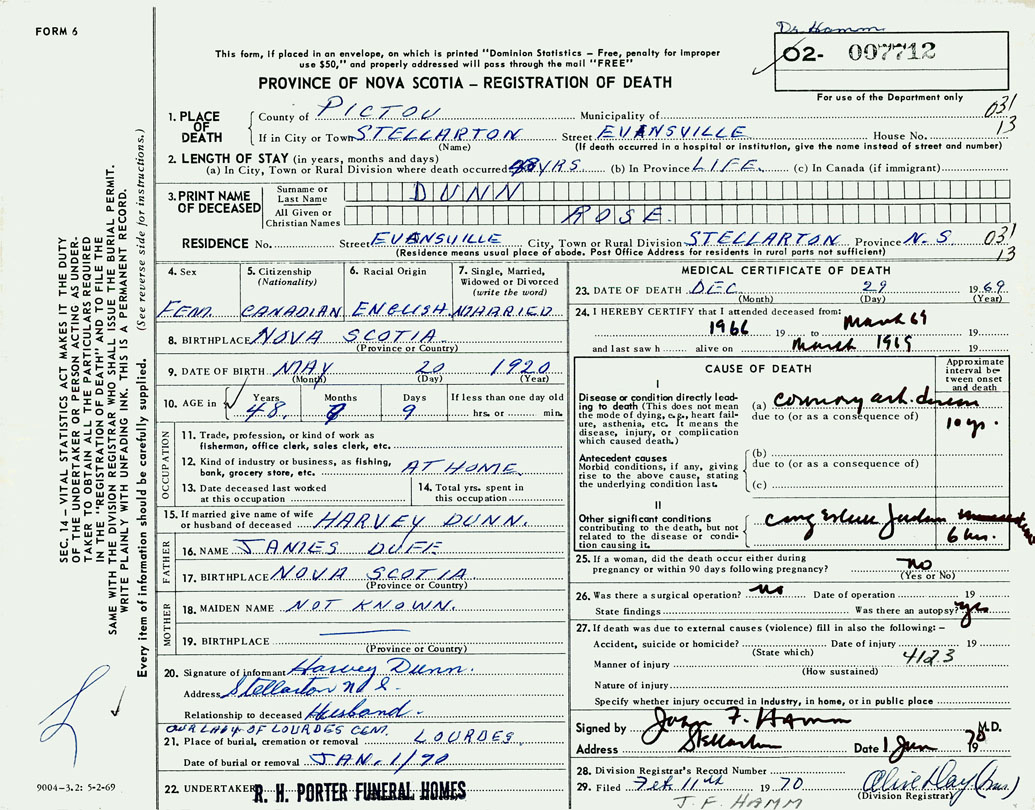 FORM 6
Dr Hamm
O2- 007712
For use of the Department only
This form, if placed in an envelope, on which is printed "Dominion Statistics – Free, penalty for improper
use $50," and properly addressed will pass through the mail "FREE"
PROVINCE OF NOVA SCOTIA – REGISTRATION OF DEATH
SEC. 14 – VITAL STATISTICS ACT MAKES IT THE DUTY
OF THE UNDERTAKER OR PERSON ACTING AS UNDER-
TAKER TO OBTAIN ALL THE PARTICULARS REQUIRED
IN THE "REGISTRATION OF DEATH" AND TO FILE THE
SAME WITH THE DIVISION REGISTRAR WHO SHALL ISSUE THE BURIAL PERMIT.
WRITE PLAINLY WITH UNFADING INK. THIS IS A PERMANENT RECORD.
Every item of information should be carefully supplied. (See reverse side for instructions.)
1. PLACE OF DEATH
County of PICTOU Municipality of 031
If in City or Town STELLARTON Street EVANSVILLE House No. 13
(Name) (If death occurred in a hospital or institution, give the name instead of street and number)
2. LENGTH OF STAY (in years, months and days)
(a) In City, Town or Rural Division where death occurred YRS (b) In Province LIFE. (c) In Canada (if immigrant)
3. PRINT NAME OF DECEASED
Surname or Last Name DUNN
All Given or Christian Names ROSE.
RESIDENCE No. Street EVANSVILLE City, Town or Rural Division STELLARTON Province N.S 031
(Residence means usual place of abode. Post Office Address for residents in rural parts not sufficient) 13
4. Sex FEM.
5. Citizenship (Nationality) CANADIAN
6. Racial Origin ENGLISH
7. Single, Married, Widowed or Divorced (write the word) MARRIED
8. BIRTHPLACE NOVA SCOTIA
(Province or Country)
9. DATE OF BIRTH MAY 20 1920
(Month) (Day) (Year)
10. AGE in Years Months Days If less than one day old
48. 9 hrs. or min.
OCCUPATION
11. Trade, profession, or kind of work as
fisherman, office clerk, sales clerk, etc.
12. Kind of industry or business, as fishing,
bank, grocery store, etc. AT HOME.
13. Date deceased last worked
at this occupation
14. Total yrs. spent in
this occupation
15. If married give name of wife
or husband of deceased HARVEY DUNN.
FATHER
16. NAME JAMES DUFF
17. BIRTHPLACE NOVA SCOTIA
(Province or Country)
MOTHER
18. MAIDEN NAME NOT KNOWN.
19. BIRTHPLACE
(Province or Country)
20. Signature of informant Harvey Dunn.
Address Stellarton N S.
Relationship to deceased Husband.
OUR LADY OF LOURDES CEM.
21. Place of burial, cremation or removal LOURDES.
Date of burial or removal JAN. 1/70
9004-3.2: 5-2-69
22. UNDERTAKER R. H. PORTER FUNERAL HOMES
MEDICAL CERTIFICATE OF DEATH
23. DATE OF DEATH DEC 29 1969
(Month) (Day) (Year)
24. I HEREBY CERTIFY that I attended deceased from:
1966 19 to March 69 19
and last saw h alive on March 1969 19
CAUSE OF DEATH
Approximate interval between onset and death
I
Disease or condition directly leading to death (This does not mean the mode of dying, e.g., heart failure, asthenia, etc. It means the disease, injury, or complication which caused death.)
(a) coronary art. disease
due to (or as a consequence of) 10 yrs.
Antecedent causes
Morbid conditions, if any, giving rise to the above cause, stating the underlying condition last.
(b)
due to (or as a consequence of)
(c)
II
Other significant conditions contributing to the death, but not related to the disease or condition causing it.
congestive
6 hrs.
25. If a woman, did the death occur either during
pregnancy or within 90 days following pregnancy? no
(Yes or No)
26. Was there a surgical operation? no Date of operation 19
State findings Was there an autopsy? yes
27. If death was due to external causes (violence) fill in also the following: –
Accident, suicide or homicide? Date of injury 19
(State which) 4123
Manner of injury
(How sustained)
Nature of injury
Specify whether injury occurred in industry, in home, or in public place
Signed by John F. Hamm M.D.
Address Stellarton Date 1 Jan 1970
28. Division Registrar's Record Number
29. Filed Feb 11th 1970 Olive Day (Mrs.)
(Division Registrar)
J. F. HAMM